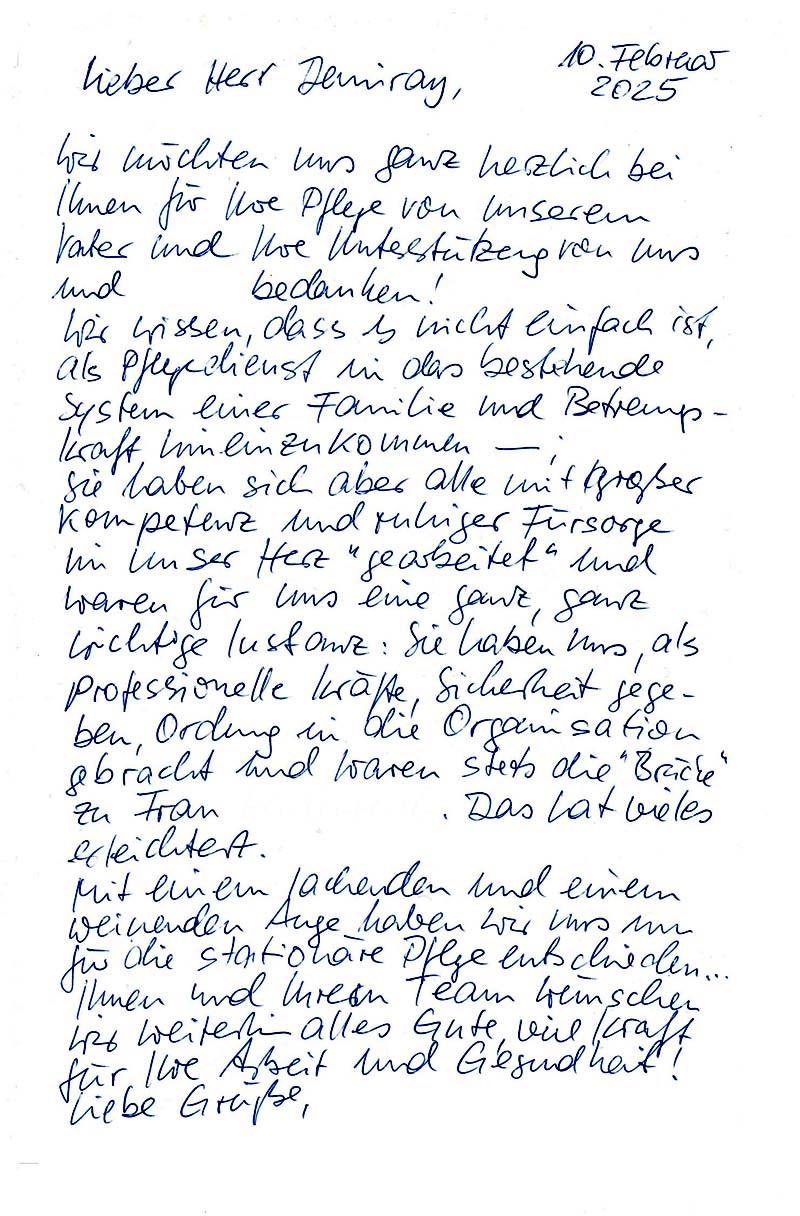 10. Februar
2025
Lieber Herr Demiray,
wir möchten uns ganz herzlich bei
Ihnen für Ihre Pflege von unserem
Vater und Ihre Unterstützung von uns
und bedanken!
Wir wissen, dass es nicht einfach ist,
als Pflegedienst in das bestehende
System einer Familie und Betreuungs-
kraft hineinzukommen —;
Sie haben sich aber alle mit großer
Kompetenz und ruhiger Fürsorge
in unser Herz "gearbeitet" und
waren für uns eine ganz, ganz
wichtige Instanz: Sie haben uns, als
professionelle Kräfte, Sicherheit gege-
ben, Ordnung in die Organisation
gebracht und waren stets die "Brücke"
zu Frau . Das hat vieles
erleichtert.
Mit einem lachenden und einem
weinenden Auge haben wir uns nun
für die stationäre Pflege entschieden...
Ihnen und Ihrem Team wünschen
wir weiterhin alles Gute, viel Kraft
für Ihre Arbeit und Gesundheit!
Liebe Grüße,